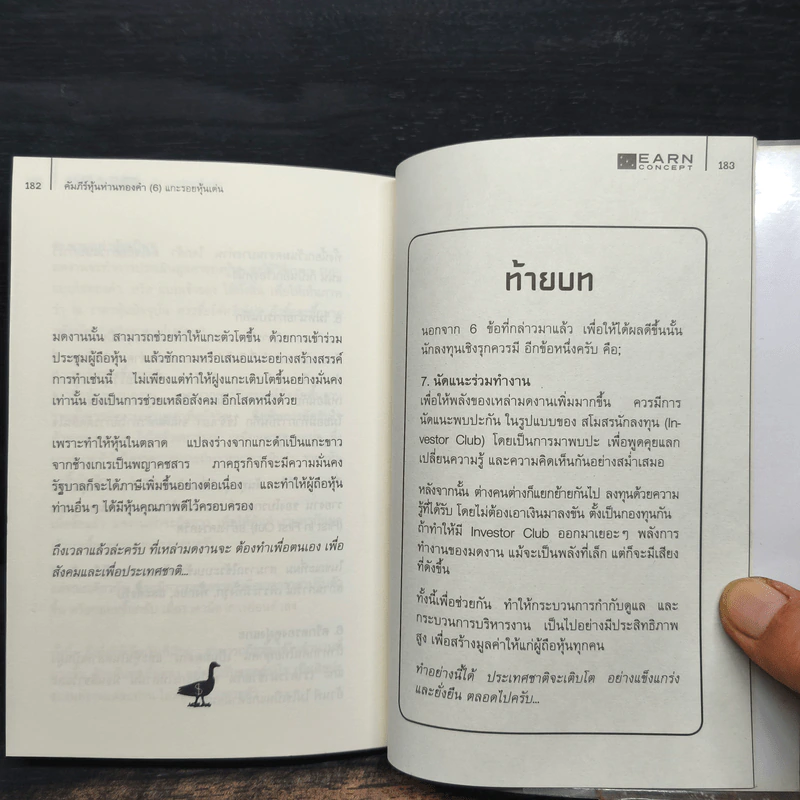 182
คัมภีร์หุ้นห่านทองคำ (6) แกะรอยหุ้นเด่น
มดงานนั้น สามารถช่วยทำให้แกะตัวโตขึ้น ด้วยการเข้าร่วม
ประชุมผู้ถือหุ้น แล้วซักถามหรือเสนอแนะอย่างสร้างสรรค์
การทำเช่นนี้ ไม่เพียงแต่ทำให้ฝูงแกะเติบโตขึ้นอย่างมั่นคง
เท่านั้น ยังเป็นการช่วยเหลือสังคม อีกโสตหนึ่งด้วย
เพราะทำให้หุ้นในตลาด แปลงร่างจากแกะดำเป็นแกะขาว
จากช้างเกเรเป็นพญาคชสาร ภาคธุรกิจก็จะมีความมั่นคง
รัฐบาลก็จะได้ภาษีเพิ่มขึ้นอย่างต่อเนื่อง และทำให้ผู้ถือหุ้น
ท่านอื่นๆ ได้มีหุ้นคุณภาพดีไว้ครอบครอง
ถึงเวลาแล้วล่ะครับ ที่เหล่ามดงานจะ ต้องทำเพื่อตนเอง เพื่อ
สังคมและเพื่อประเทศชาติ...
EARN
CONCEPT
183
ท้ายบท
นอกจาก 6 ข้อที่กล่าวมาแล้ว เพื่อให้ได้ผลดีขึ้นนั้น
นักลงทุนเชิงรุกควรมี อีกข้อหนึ่งครับ คือ;
7. นัดแนะร่วมทำงาน
เพื่อให้พลังของเหล่ามดงานเพิ่มมากขึ้น ควรมีการ
นัดแนะพบปะกัน ในรูปแบบของ สโมสรนักลงทุน (In-
vestor Club) โดยเป็นการมาพบปะ เพื่อพูดคุยแลก
เปลี่ยนความรู้ และความคิดเห็นกันอย่างสม่ำเสมอ
หลังจากนั้น ต่างคนต่างก็แยกย้ายกันไป ลงทุนด้วยความ
รู้ที่ได้รับ โดยไม่ต้องเอาเงินมาลงขัน ตั้งเป็นกองทุนกัน
ถ้าทำให้มี Investor Club ออกมาเยอะๆ พลังการ
ทำงานของมดงาน แม้จะเป็นพลังที่เล็ก แต่ก็จะมีเสียง
ที่ดังขึ้น
ทั้งนี้เพื่อช่วยกัน ทำให้กระบวนการกำกับดูแล และ
กระบวนการบริหารงาน เป็นไปอย่างมีประสิทธิภาพ
สูง เพื่อสร้างมูลค่าให้แก่ผู้ถือหุ้นทุกคน
ทำอย่างนี้ได้ ประเทศชาติจะเติบโต อย่างแข็งแกร่ง
และยั่งยืน ตลอดไปครับ...